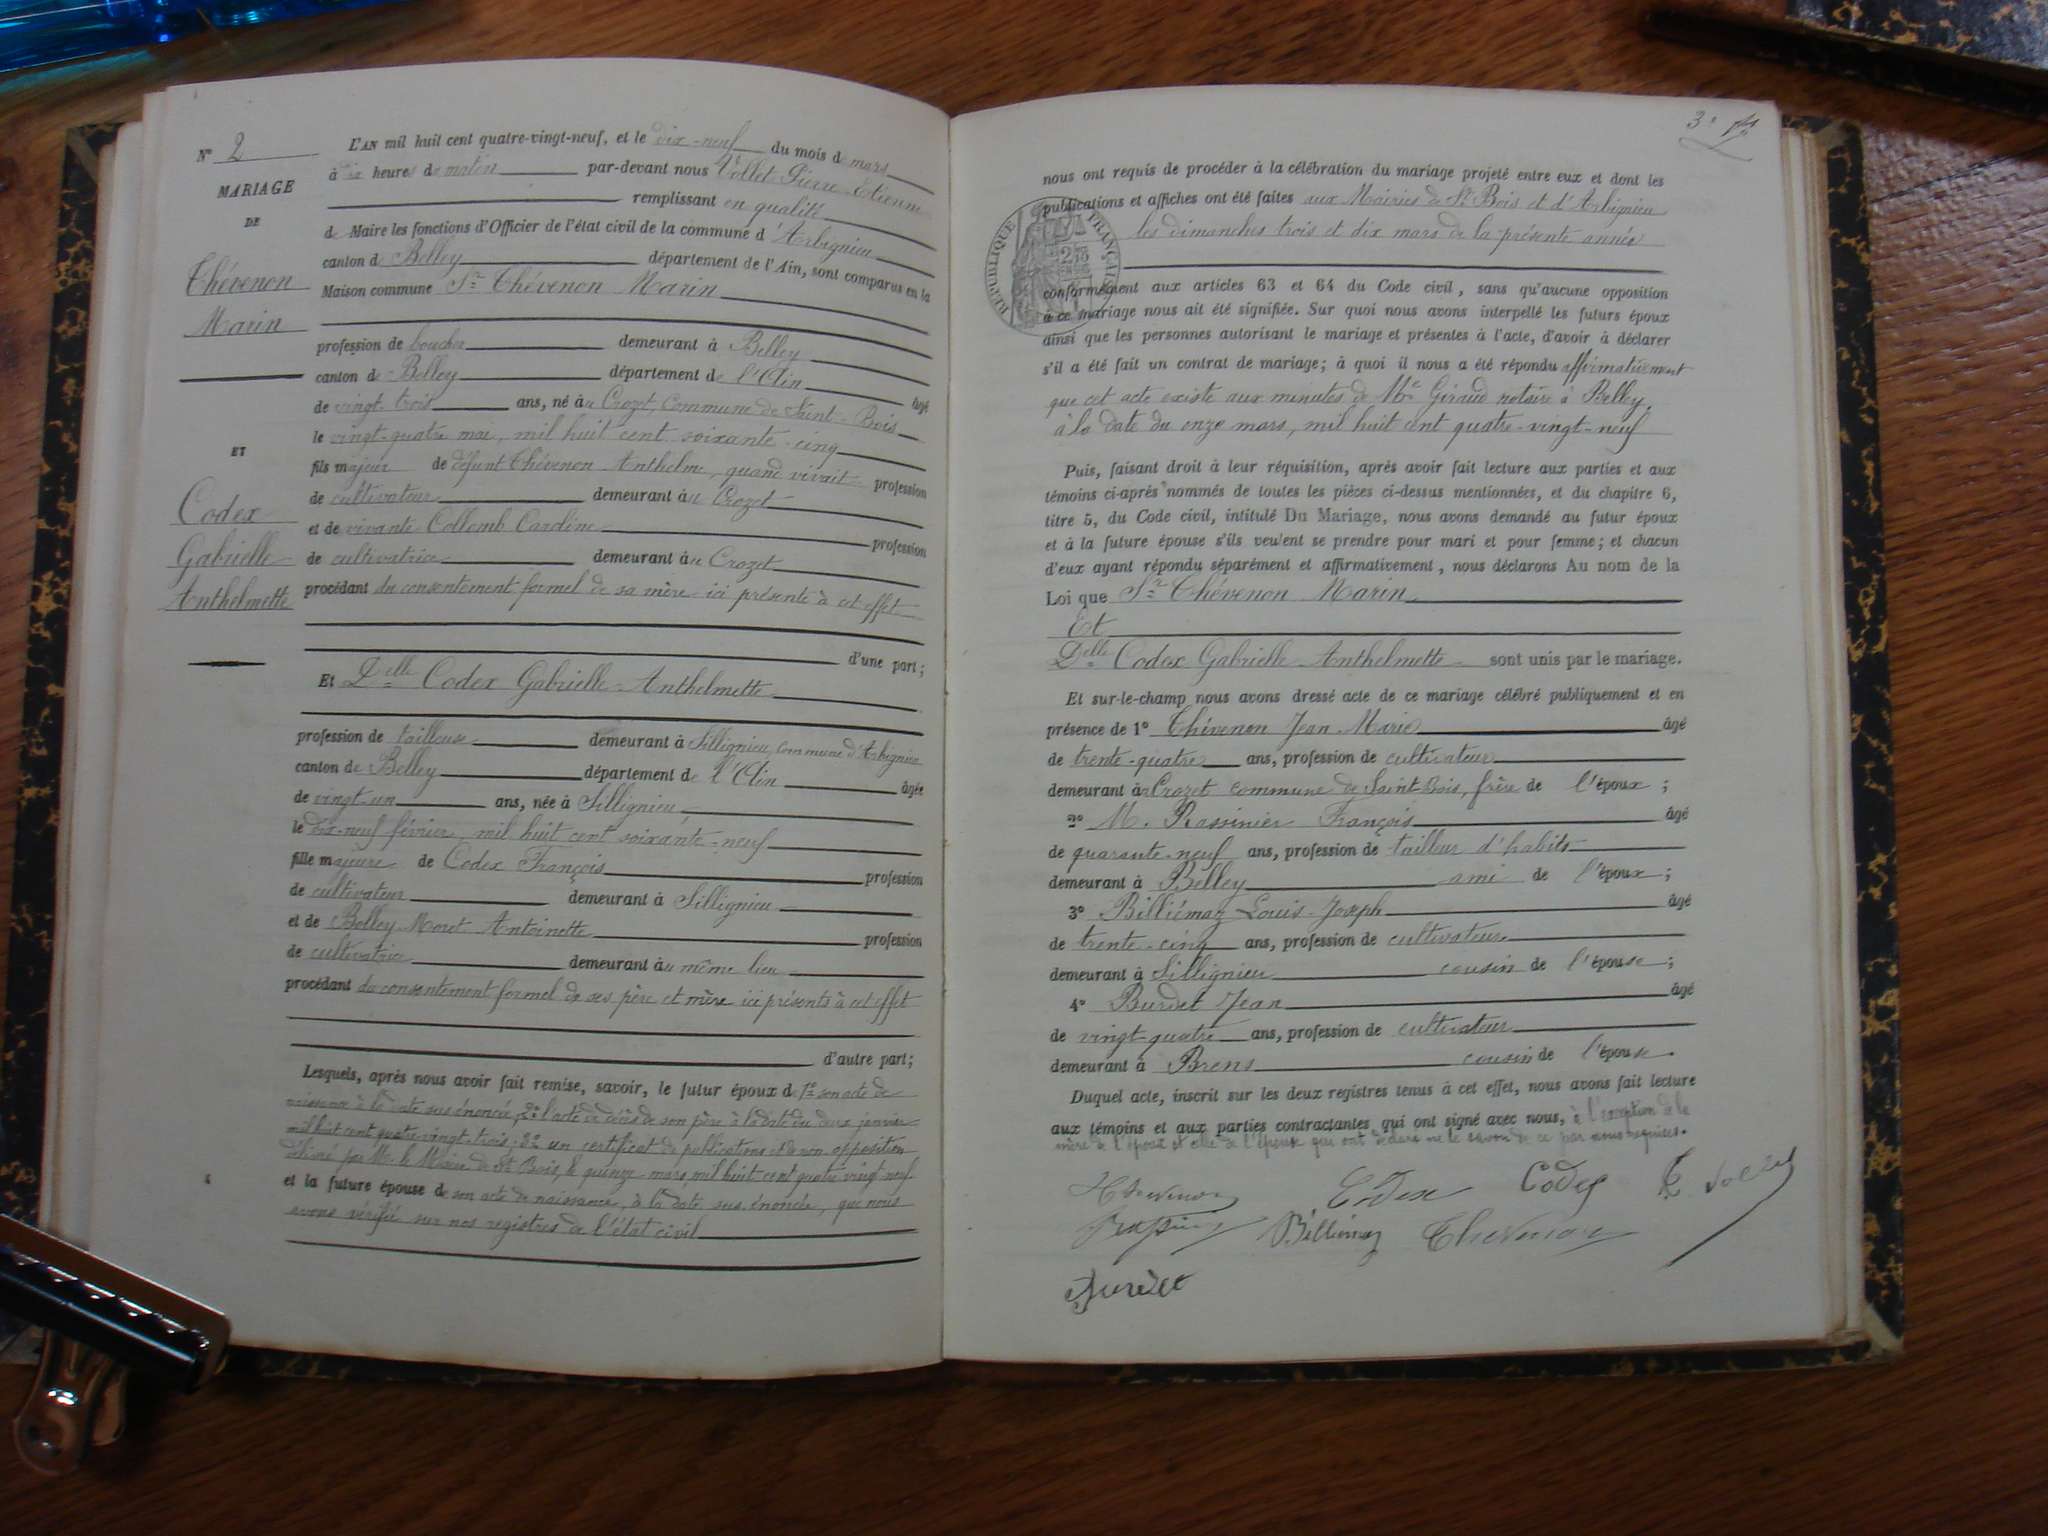 N° 2
MARIAGE
DE
Thévenon
Marin
ET
Codex
Gabrielle
Anthelmette
L'AN mil huit cent quatre-vingt-neuf, et le dix-neuf du mois de mars
à dix heures du matin par-devant nous Vollet Pierre Etienne
remplissant en qualité
de Maire les fonctions d'Officier de l'état civil de la commune d'Arbignieu
canton de Belley département de l'Ain, sont comparus en la
Maison commune Sr Thévenon Marin
profession de boucher demeurant à Belley
canton de Belley département de l'Ain âgé
de vingt-trois ans, né au Crozet, commune de Saint-Bois
le vingt-quatre mai, mil huit cent soixante-cinq
fils majeur de défunt Thévenon Anthelme, quand vivait profession
de cultivateur demeurant au Crozet
et de vivante Collomb Caroline profession
de cultivatrice demeurant au Crozet
procédant du consentement formel de sa mère ici présente à cet effet
d'une part;
Et Delle Codex Gabrielle-Anthelmette
profession de tailleuse demeurant à Sillignieu, commune d'Arbignieu
canton de Belley département de l'Ain âgée
de vingt-un ans, née à Sillignieu
le dix-neuf février, mil huit cent soixante-neuf
fille majeure de Codex François profession
de cultivateur demeurant à Sillignieu
et de Bolley-Moret Antoinette profession
de cultivatrice demeurant au même lieu
procédant du consentement formel de ses père et mère ici présents à cet effet
d'autre part;
Lesquels, après nous avoir fait remise, savoir, le futur époux de 1° son acte de
naissance à la date sus énoncée, 2° l'acte de décès de son père à la date du deux janvier
mil huit cent quatre-vingt-trois; 3° un certificat de publications et de non opposition
délivré par Mr le Maire de St Bois, le quinze mars mil huit cent quatre vingt-neuf
et la future épouse de son acte de naissance, à la date sus énoncée, que nous
avons vérifié sur nos registres de l'état civil
3e
nous ont requis de procéder à la célébration du mariage projeté entre eux et dont les
publications et affiches ont été faites aux Mairies de St Bois et d'Arbignieu
les dimanches trois et dix mars de la présente année
RÉPUBLIQUE FRANÇAISE
conformément aux articles 63 et 64 du Code civil, sans qu'aucune opposition
à ce mariage nous ait été signifiée. Sur quoi nous avons interpellé les futurs époux
ainsi que les personnes autorisant le mariage et présentes à l'acte, d'avoir à déclarer
s'il a été fait un contrat de mariage; à quoi il nous a été répondu affirmativement
que cet acte existe aux minutes de Me Giraud notaire à Belley,
à la date du onze mars, mil huit cent quatre-vingt-neuf
Puis, faisant droit à leur réquisition, après avoir fait lecture aux parties et aux
témoins ci-après nommés de toutes les pièces ci-dessus mentionnées, et du chapitre 6,
titre 5, du Code civil, intitulé Du Mariage, nous avons demandé au futur époux
et à la future épouse s'ils veulent se prendre pour mari et pour femme; et chacun
d'eux ayant répondu séparément et affirmativement, nous déclarons Au nom de la
Loi que Sr Thévenon Marin
Et
Delle Codex Gabrielle-Anthelmette sont unis par le mariage.
Et sur-le-champ nous avons dressé acte de ce mariage célébré publiquement et en
présence de 1° Thévenon Jean-Marie âgé
de trente-quatre ans, profession de cultivateur
demeurant à Crozet commune de Saint-Bois, frère de l'époux;
2° M. Rassinier François âgé
de quarante-neuf ans, profession de tailleur d'habits
demeurant à Belley ami de l'époux;
3° Billiémaz Louis-Joseph âgé
de trente-cinq ans, profession de cultivateur
demeurant à Sillignieu cousin de l'épouse;
4° Burdet Jean âgé
de vingt-quatre ans, profession de cultivateur
demeurant à Brens cousin de l'épouse.
Duquel acte, inscrit sur les deux registres tenus à cet effet, nous avons fait lecture
aux témoins et aux parties contractantes qui ont signé avec nous, à l'exception de la
mère de l'époux et celle de l'épouse qui ont déclaré ne le savoir de ce par nous requises.
Thevenon Codex Codex Vollet
Billiémaz Thevenon